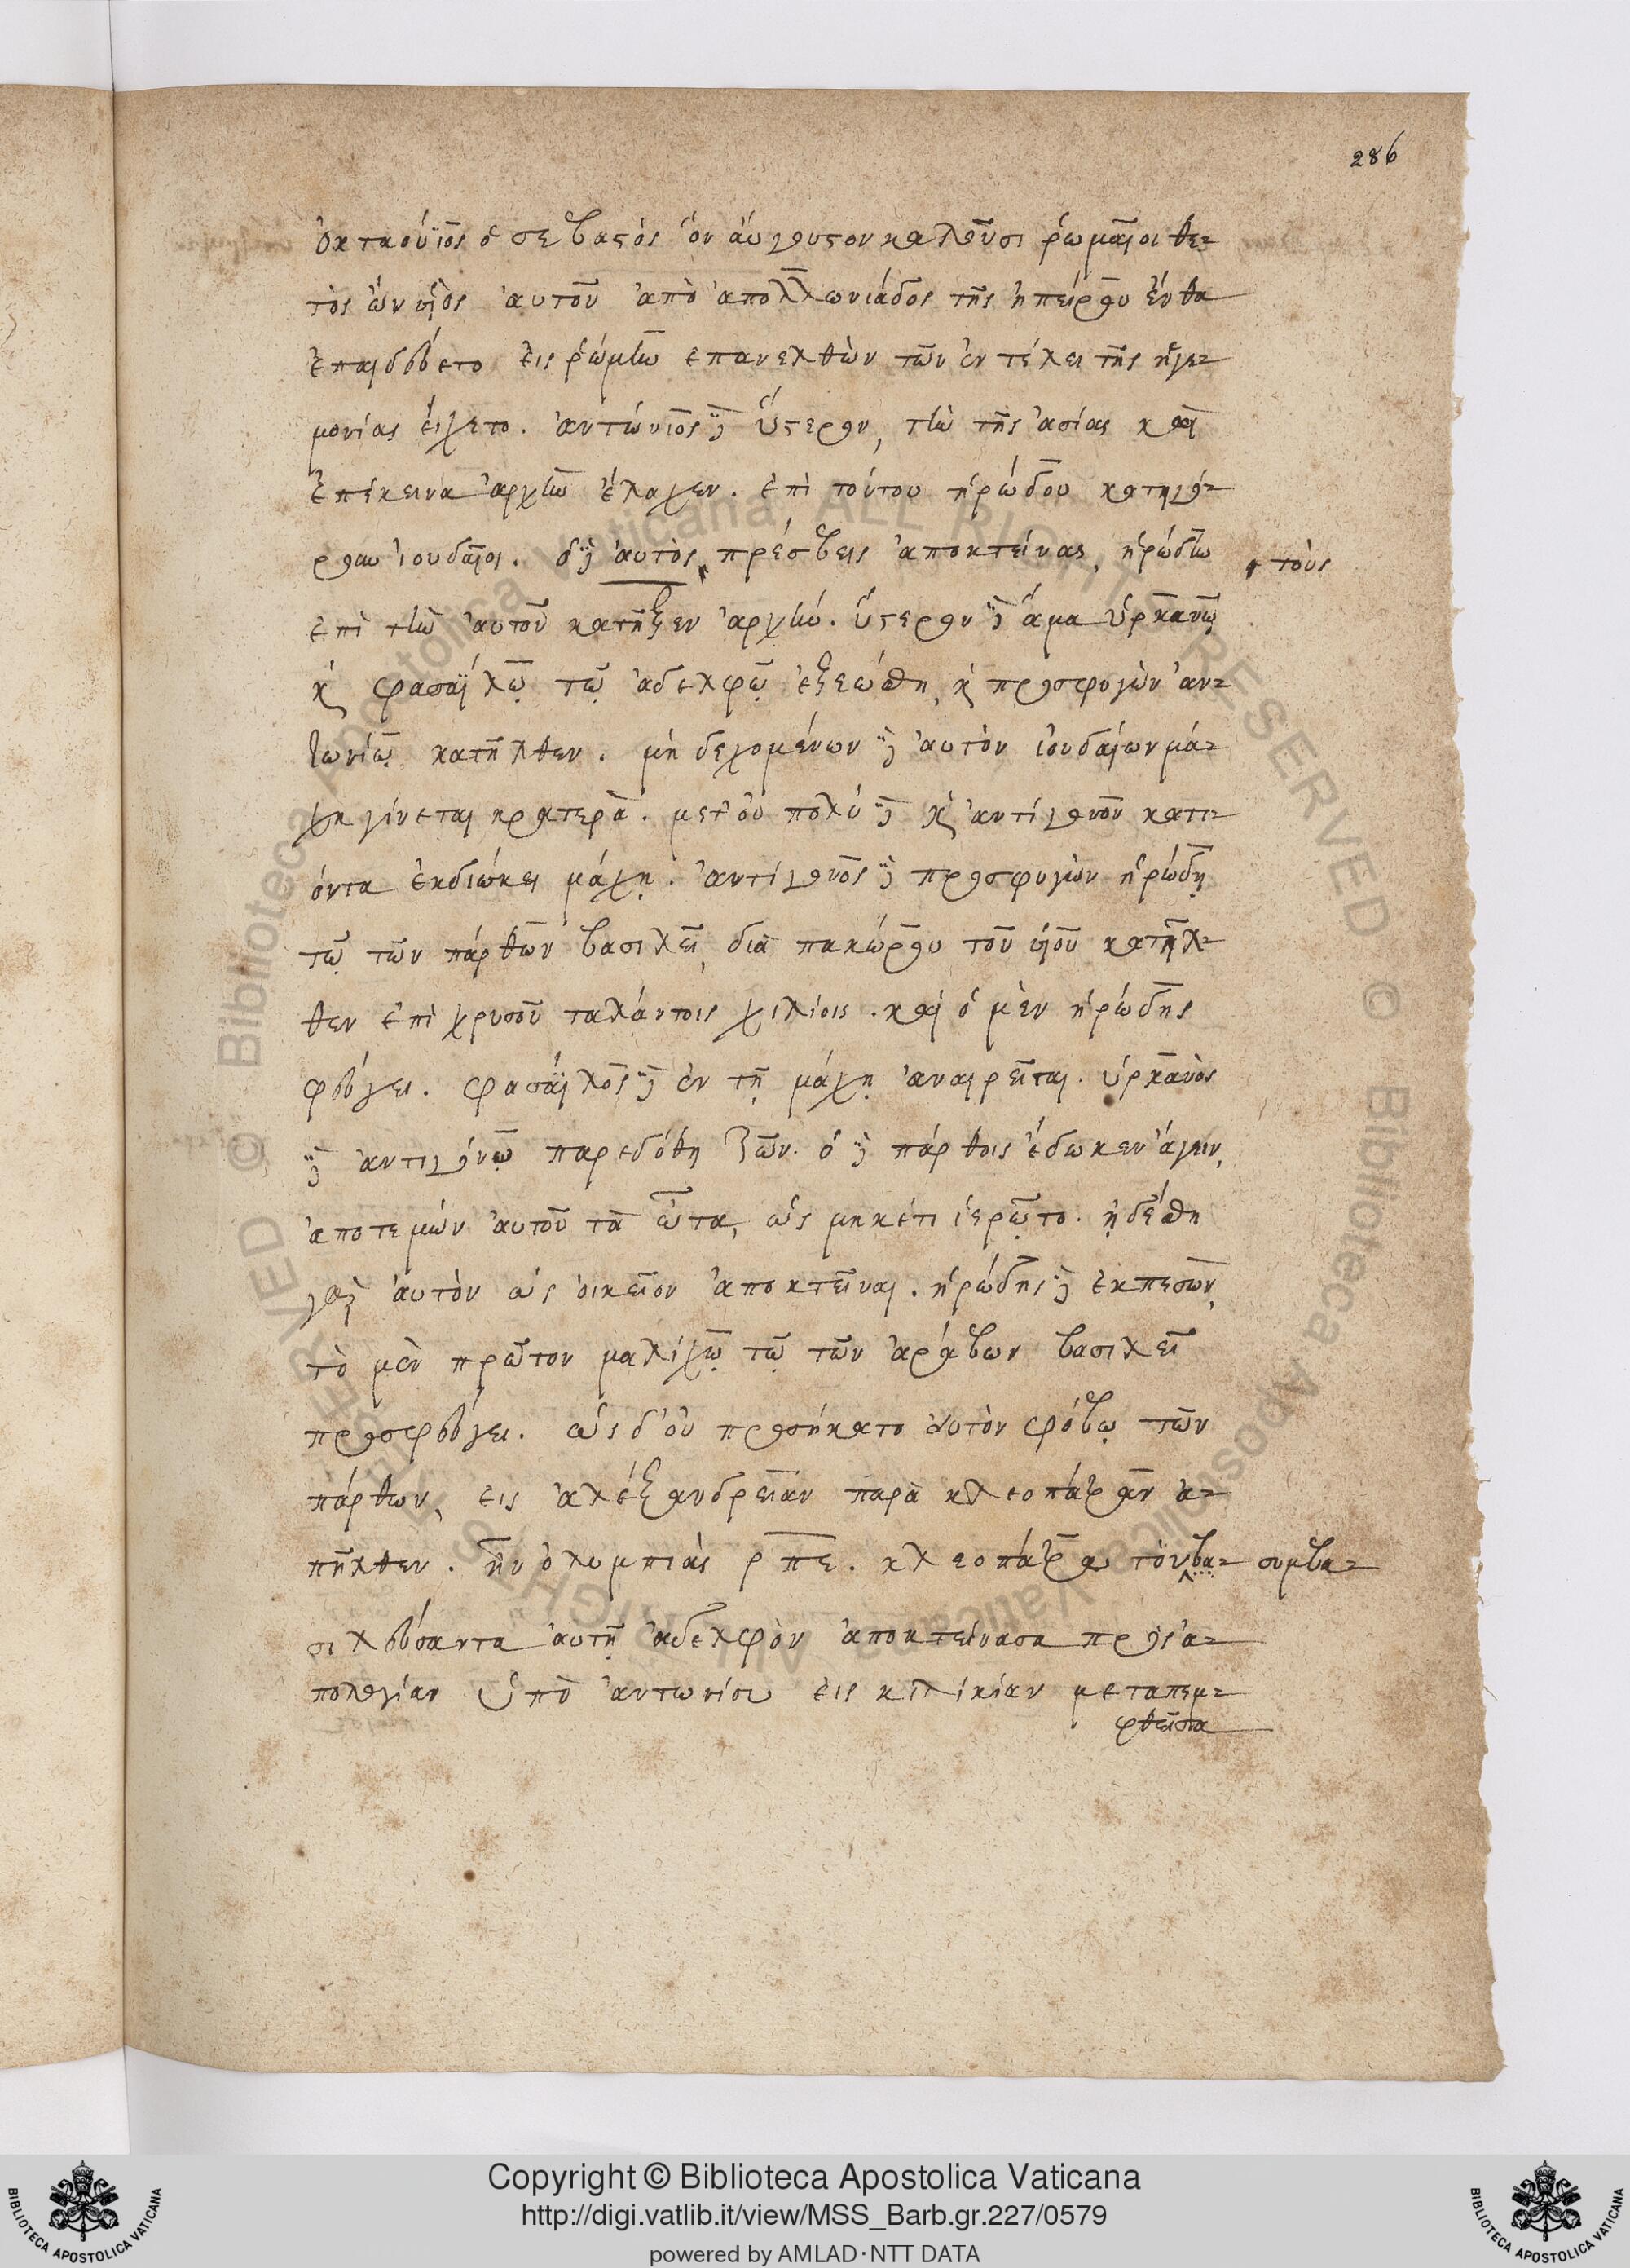 286
ὀκταούϊος ὁ σεβαστός ὅν ἀύγουστον καλοῦσι ῥωμαῖοι θε-
τὸς ὢν υἱὸς αὐτοῦ ἀπὸ ἀπολλωνιάδος τῆς ἠπείρου ἔνθα
ἐπαιδεύετο εἰς ῥώμην ἐπανελθὼν τῶν ἐν τέλει τῆς ἡγε-
μονίας εἴχετο. ἀντώνιος δὲ ὕστερον, τὴν τῆς ἀσίας καὶ
ἐπέκεινα ἀρχὴν ἔλαχεν. ἐπὶ τούτου ἡρώδου κατηγό-
ρουν ἰουδαῖοι. ὁ δὲ αὐτὸς πρέσβεις ἀποκτείνας, ἡρώδην
τοὺς
ἐπὶ τὴν αὐτοῦ κατῆξεν ἀρχήν. ὕστερον δὲ ἅμα ὑρκανῷ
κ φασαΐλῳ τῷ ἀδελφῷ ἐξεώθη, κ προσφυγὼν ἀν-
τωνίῳ κατῆλθεν. μὴ δεχομένων δὲ αὐτὸν ἰουδαίων μά-
χη γίνεται κρατερὰ. μετ' οὐ πολύ δὲ κ ἀντίγονον κατι-
όντα ἐκδιώκει μάχῃ. ἀντίγονος δὲ προσφυγὼν ἡρώδῃ
τῷ τῶν πάρθων βασιλεῖ, διὰ πακώρου τοῦ υἱοῦ κατῆλ-
θεν ἐπὶ χρυσοῦ ταλάντοις χιλίοις. καὶ ὁ μὲν ἡρώδης
φεύγει. φασάϊλος δὲ ἐν τῇ μάχῃ ἀναιρεῖται. ὑρκανὸς
δὲ ἀντιγόνῳ παρεδόθη ζῶν. ὁ δὲ πάρθοις ἔδωκεν ἄγειν,
ἀποτεμών αὐτοῦ τὰ ὦτα, ὡς μηκέτι ἱερῷτο. ᾐδέσθη
γὰρ αὐτὸν ὡς οἰκεῖον ἀποκτεῖναι. ἡρώδης δὲ ἐκπεσὼν,
τὸ μὲν πρῶτον μαλίχῳ τῷ τῶν ἀράβων βασιλεῖ
προσφεύγει. ὡς δ' οὐ προσήκατο αὐτὸν φόβῳ τῶν
πάρθων, εἰς ἀλεξανδρεῖαν παρὰ κλεοπάτραν ἀ-
πῆλθεν. ἦν ὀλυμπιὰς ρπε. κλεοπάτρα τὸν βα-
συμβα-
σιλεύσαντα αὐτῇ ἀδελφὸν ἀποκτείνασα πρὸς ἀ-
πολογίαν ὑπὸ ἀντωνίου εἰς κιλικίαν μεταπεμ-
φθεῖσα
Copyright © Biblioteca Apostolica Vaticana
http://digi.vatlib.it/view/MSS_Barb.gr.227/0579
powered by AMLAD·NTT DATA
BIBLIOTECA APOSTOLICA VATICANA
BIBLIOTECA APOSTOLICA VATICANA